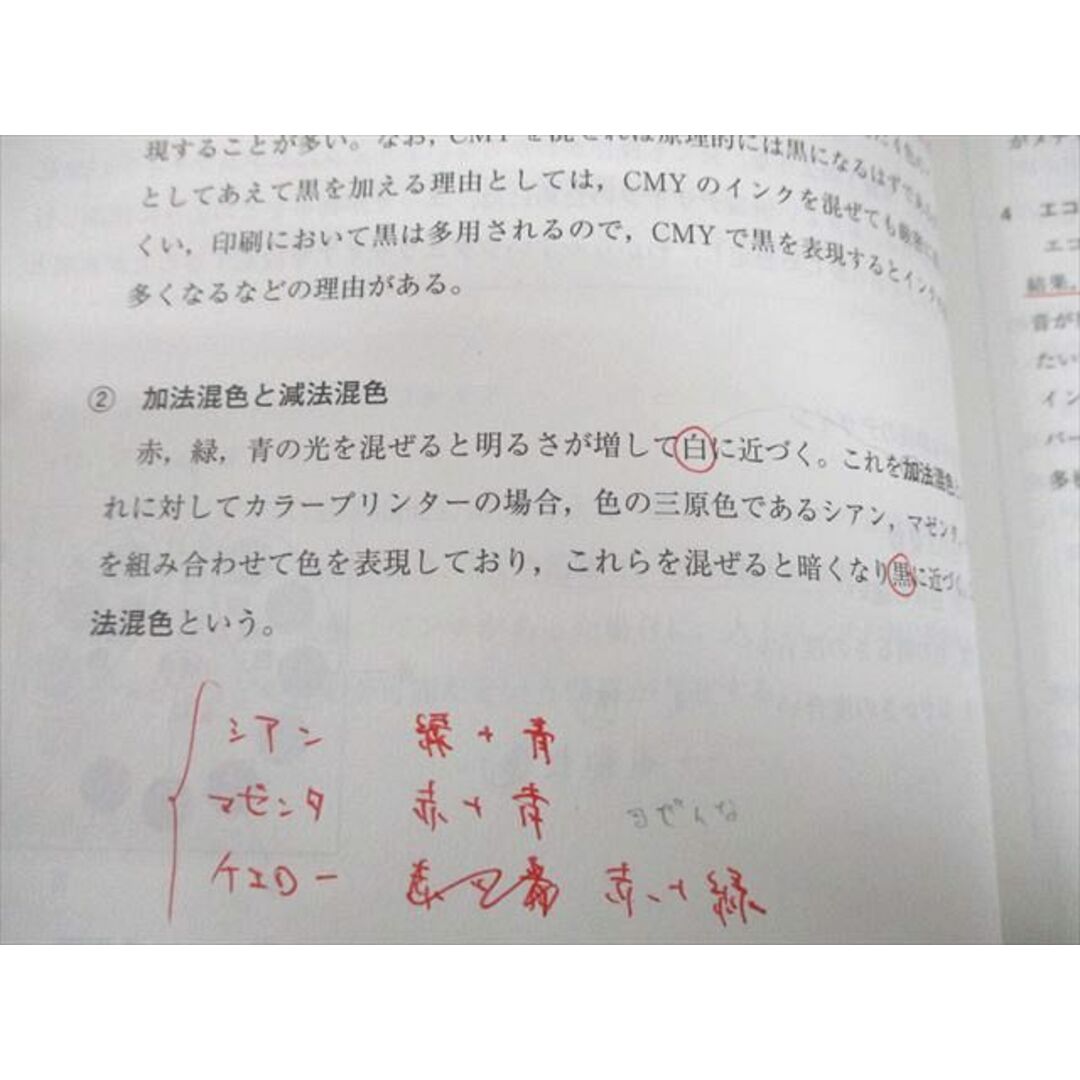 現することが多い。なお，CMYを混ぜれば原理的には黒になるはずであ
としてあえて黒を加える理由としては，CMYのインクを混ぜても厳密に
くい，印刷において黒は多用されるので，CMYで黒を表現するとインク
多くなるなどの理由がある。
② 加法混色と減法混色
赤，緑，青の光を混ぜると明るさが増して白に近づく。これを加法混色
れに対してカラープリンターの場合，色の三原色であるシアン，マゼンタ，
を組み合わせて色を表現しており，これらを混ぜると暗くなり黒に近づく
法混色という。
シアン 緑+青
マゼンタ 赤+青
イエロー 赤+緑
4 エコ
エコ
結果，
音が
たい
イン
バー
多